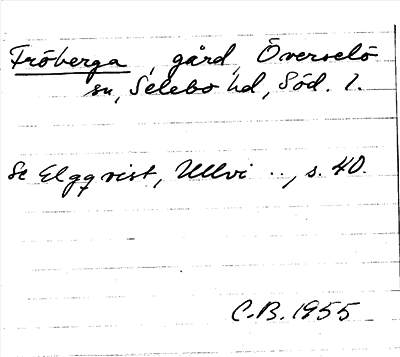 Fröberga, gård, Överselö
sn, Selebo hd, Söd. l.
Se Elgqvist, Ullvi .., s. 40.
C.B. 1955